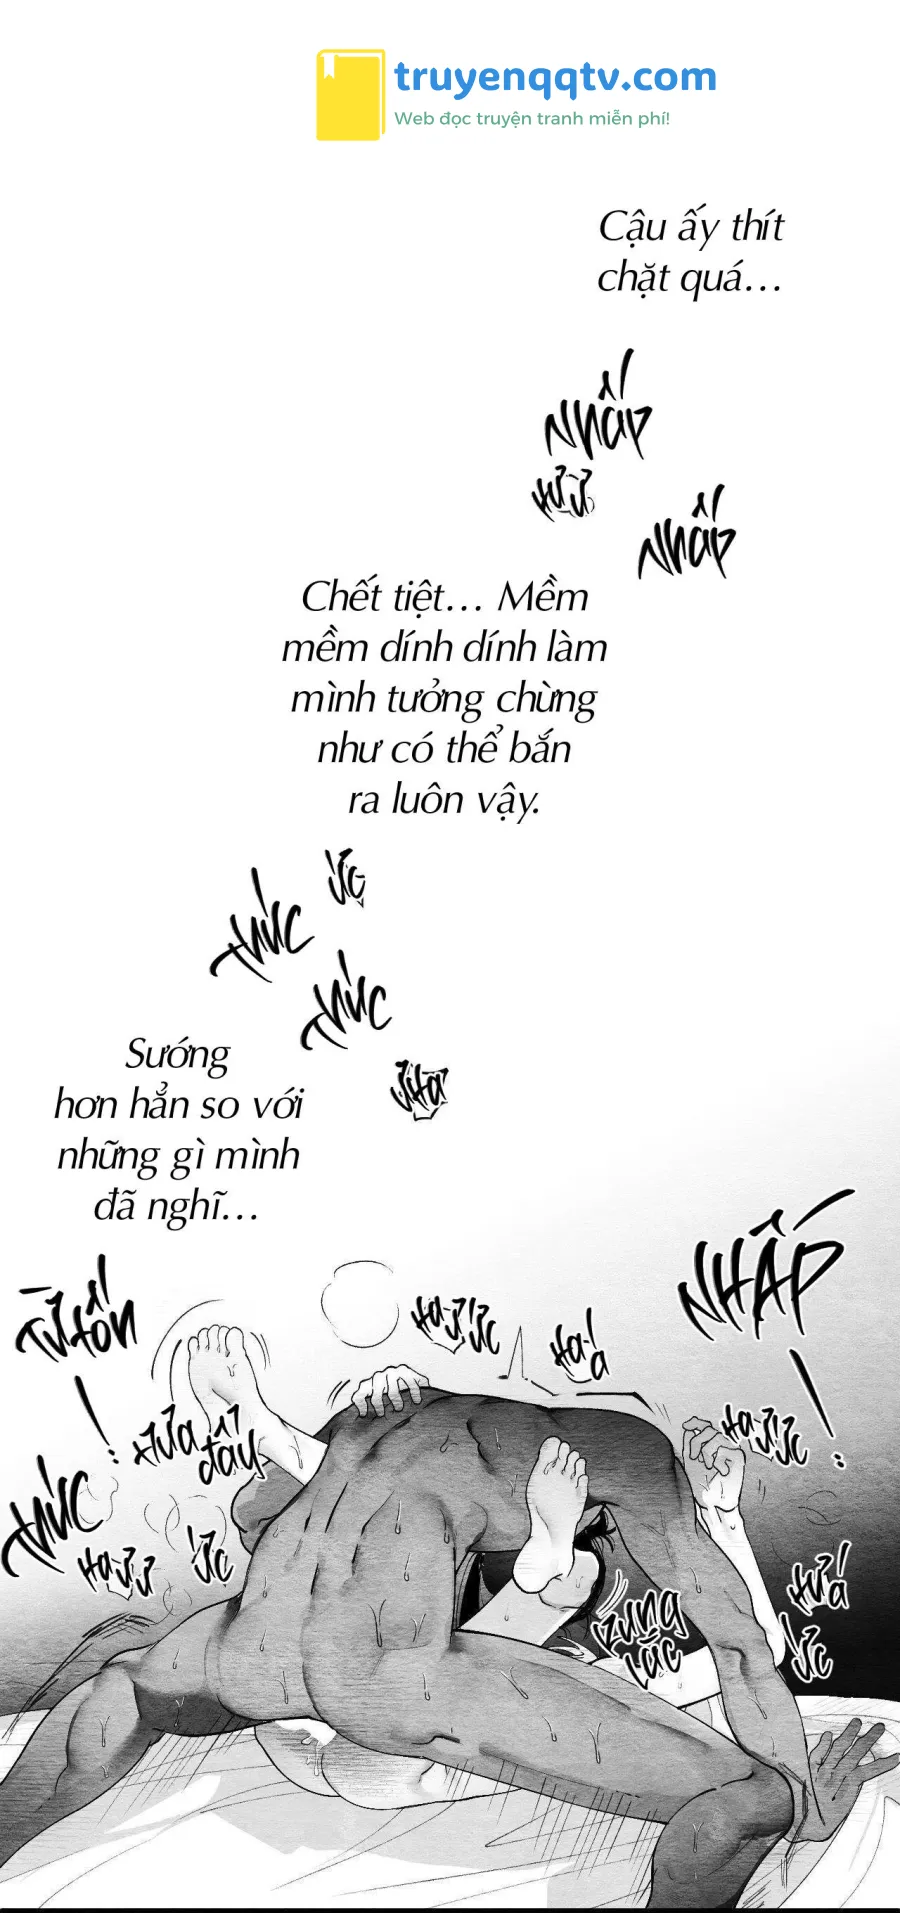 truyenqqtv.com
Web đọc truyện tranh miễn phí!
Cậu ấy thít
chặt quá...
NHẤP
HƯ Ư
NHẤP
Chết tiệt... Mềm
mềm dính dính làm
mình tưởng chừng
như có thể bắn
ra luôn vậy.
ỨC
THÚC
THÚC
ƯHA
Sướng
hơn hẳn so với
những gì mình
đã nghĩ...
NHẤP
!
TỪ TỐN
!
HA Ư ỨC
HA Á
HA Ư ỨC
ĐẨY
THÚC
HA Ư Ư
ỨC
RUNG
LẮC
HƯ Á
ỨC